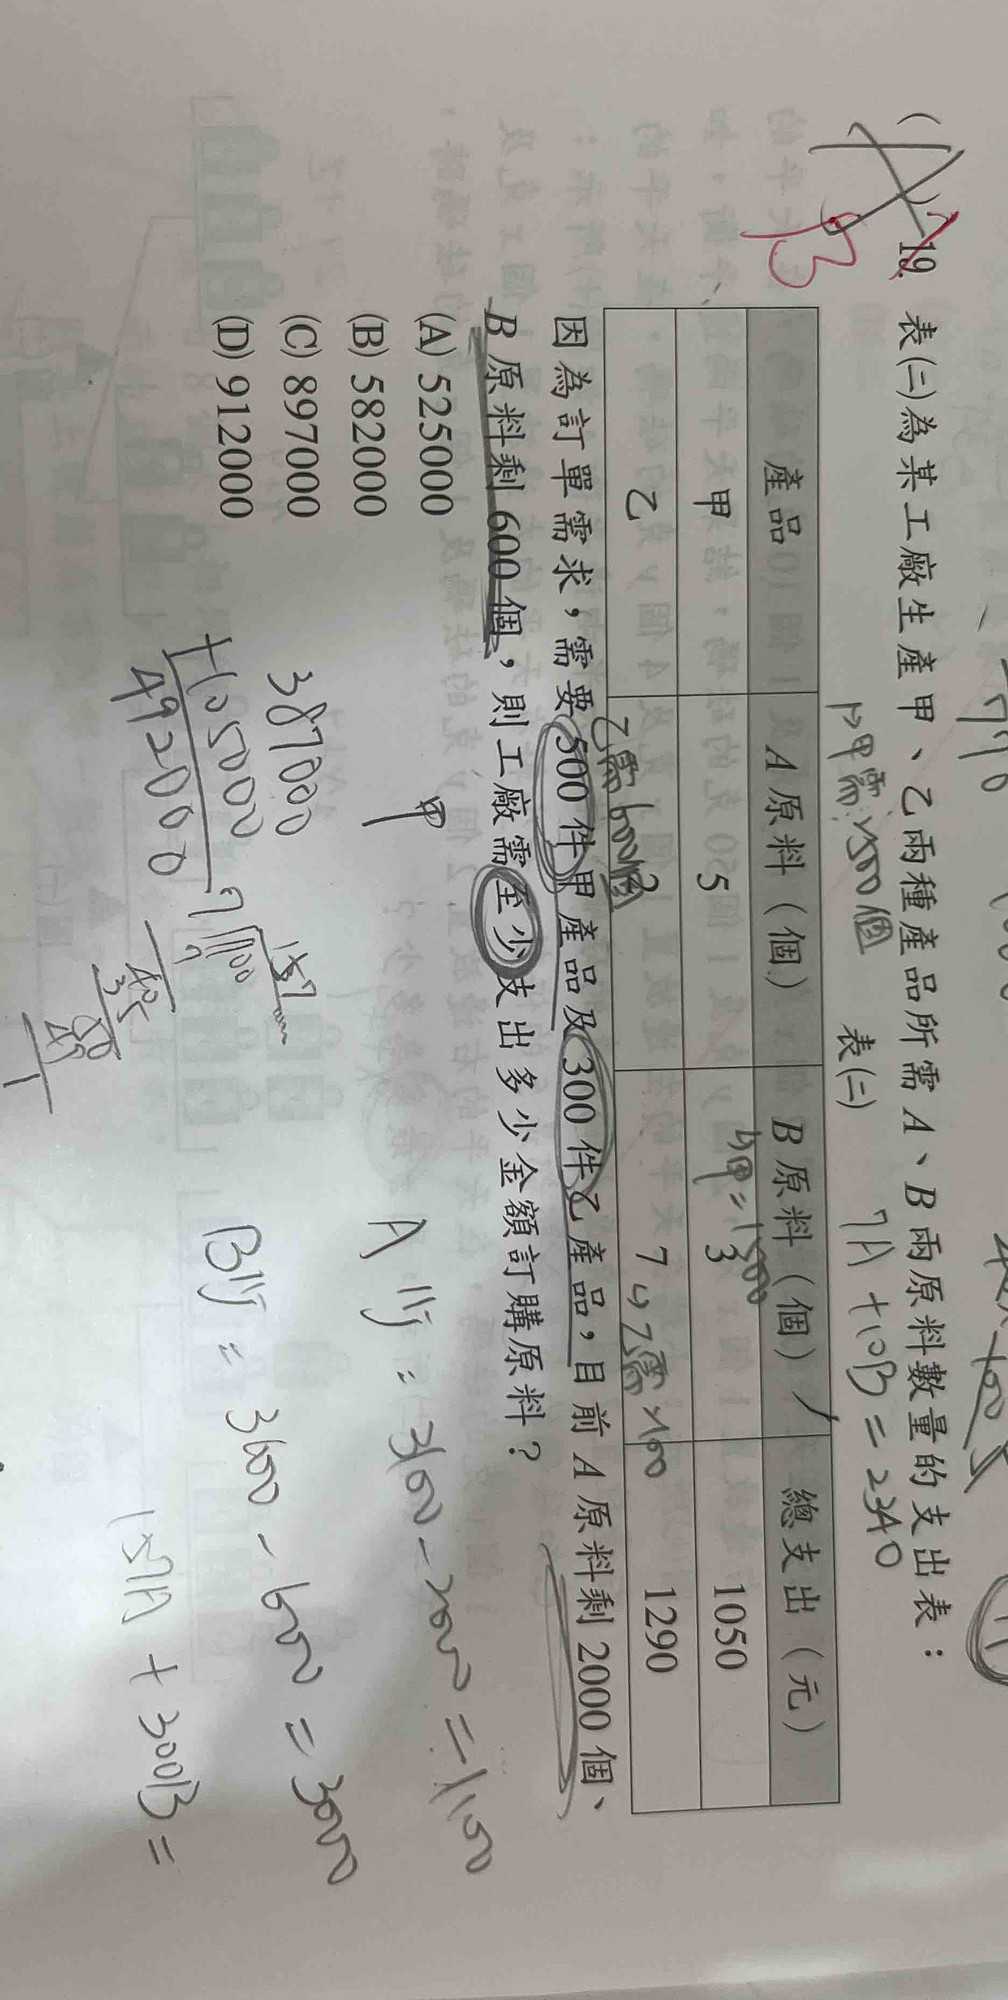 19. 表(二)為某工廠生產甲、乙兩種產品所需 A、B 兩原料數量的支出表：
甲需2500個
表(二)
7A + 10B = 2340
產品 A 原料（個） B 原料（個） 總支出（元）
甲 5 3 1050
甲=1500
乙 2 7 1290
乙需600個
乙需2100
因為訂單需求，需要 500 件甲產品及 300 件乙產品，目前 A 原料剩 2000 個、
B 原料剩 600 個，則工廠需至少支出多少金額訂購原料？
(A) 525000
(B) 582000
(C) 897000
(D) 912000
甲
A 買 = 3100 - 2000 = 1100
B買 = 3600 - 600 = 3000
387000
+105000
492000
7
1100
157
7
40
35
50
49
1
157A + 300B =